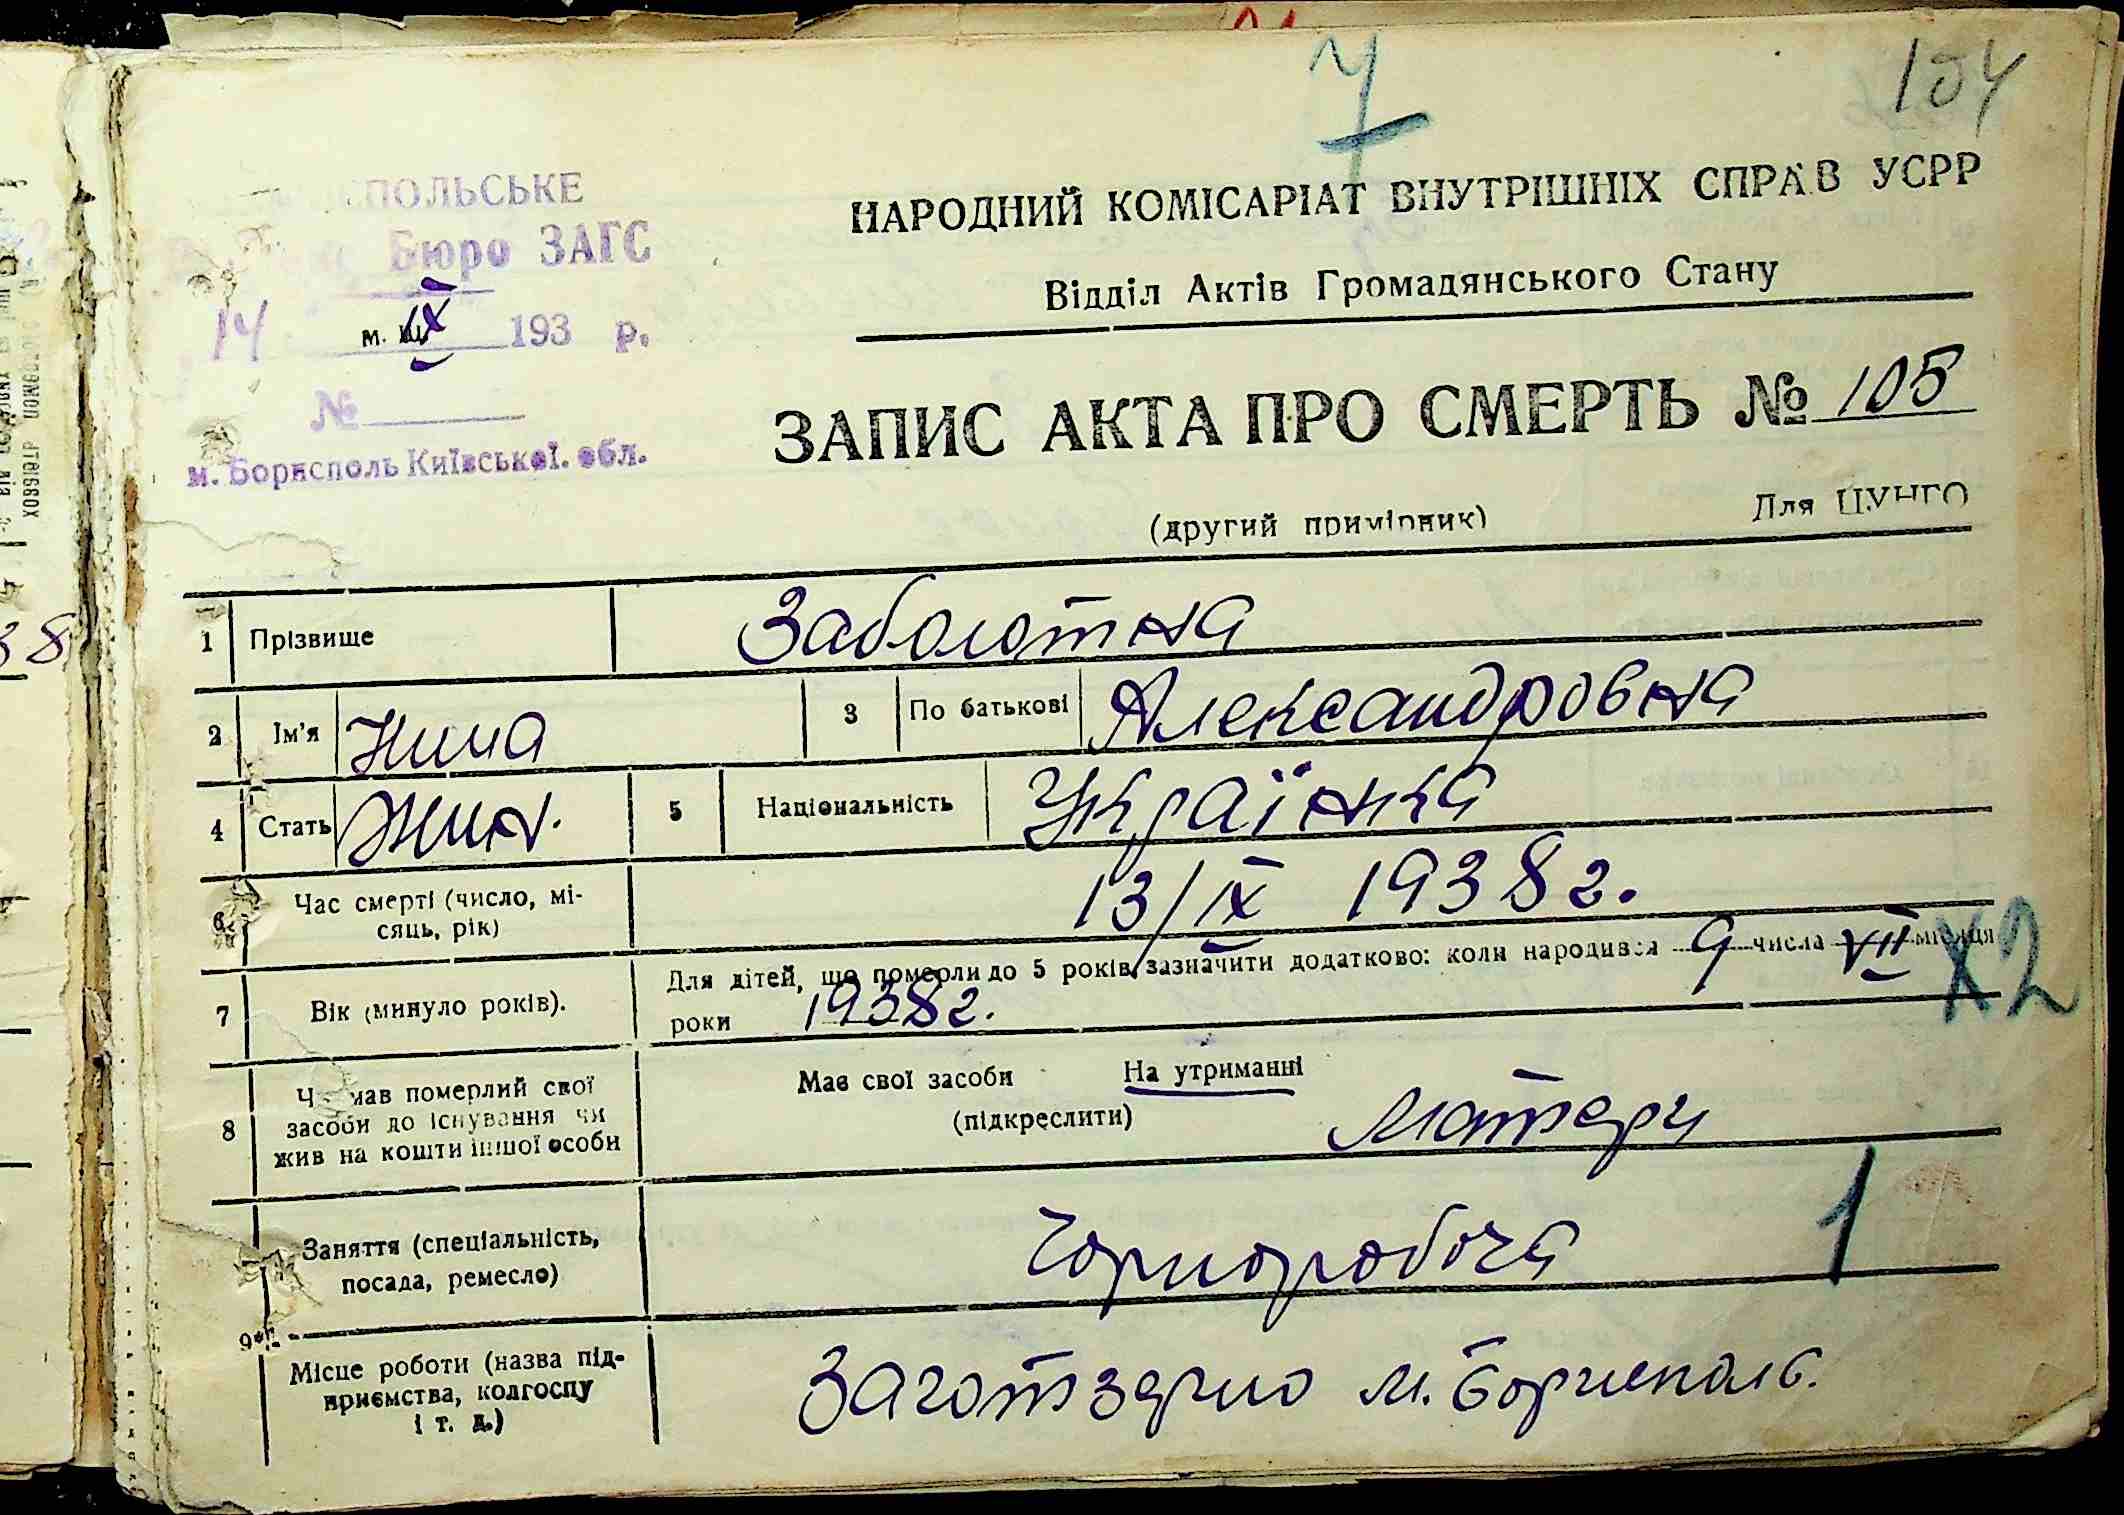 7
104
СПОЛЬСЬКЕ
Бюро ЗАГС
14 м. IX 193 р.
№
м. Борисполь Київської. обл.
НАРОДНИЙ КОМІСАРІАТ ВНУТРІШНІХ СПРАВ УСРР
Відділ Актів Громадянського Стану
ЗАПИС АКТА ПРО СМЕРТЬ № 105
(другий примірник) Для ЦУНГО
1 Прізвище Заболотна
2 Ім'я Нина 3 По батькові Александровна
4 Стать Жин. 5 Національність Українка
6 Час смерті (число, мі-
сяць, рік) 13/IX 1938 г.
7 Вік (минуло років). Для дітей, що померли до 5 років, зазначити додатково: коли народився 9 числа VII місяця
роки 1938 г.
Х2
8 Чи мав померлий свої
засоби до існування чи
жив на кошти іншої особи
Має свої засоби На утриманні
(підкреслити) матери
Заняття (спеціальність,
посада, ремесло) Чорноробоча 1
9
Місце роботи (назва під-
приємства, колгоспу
і т. д.) Заготзерно м. Борисполь.
38